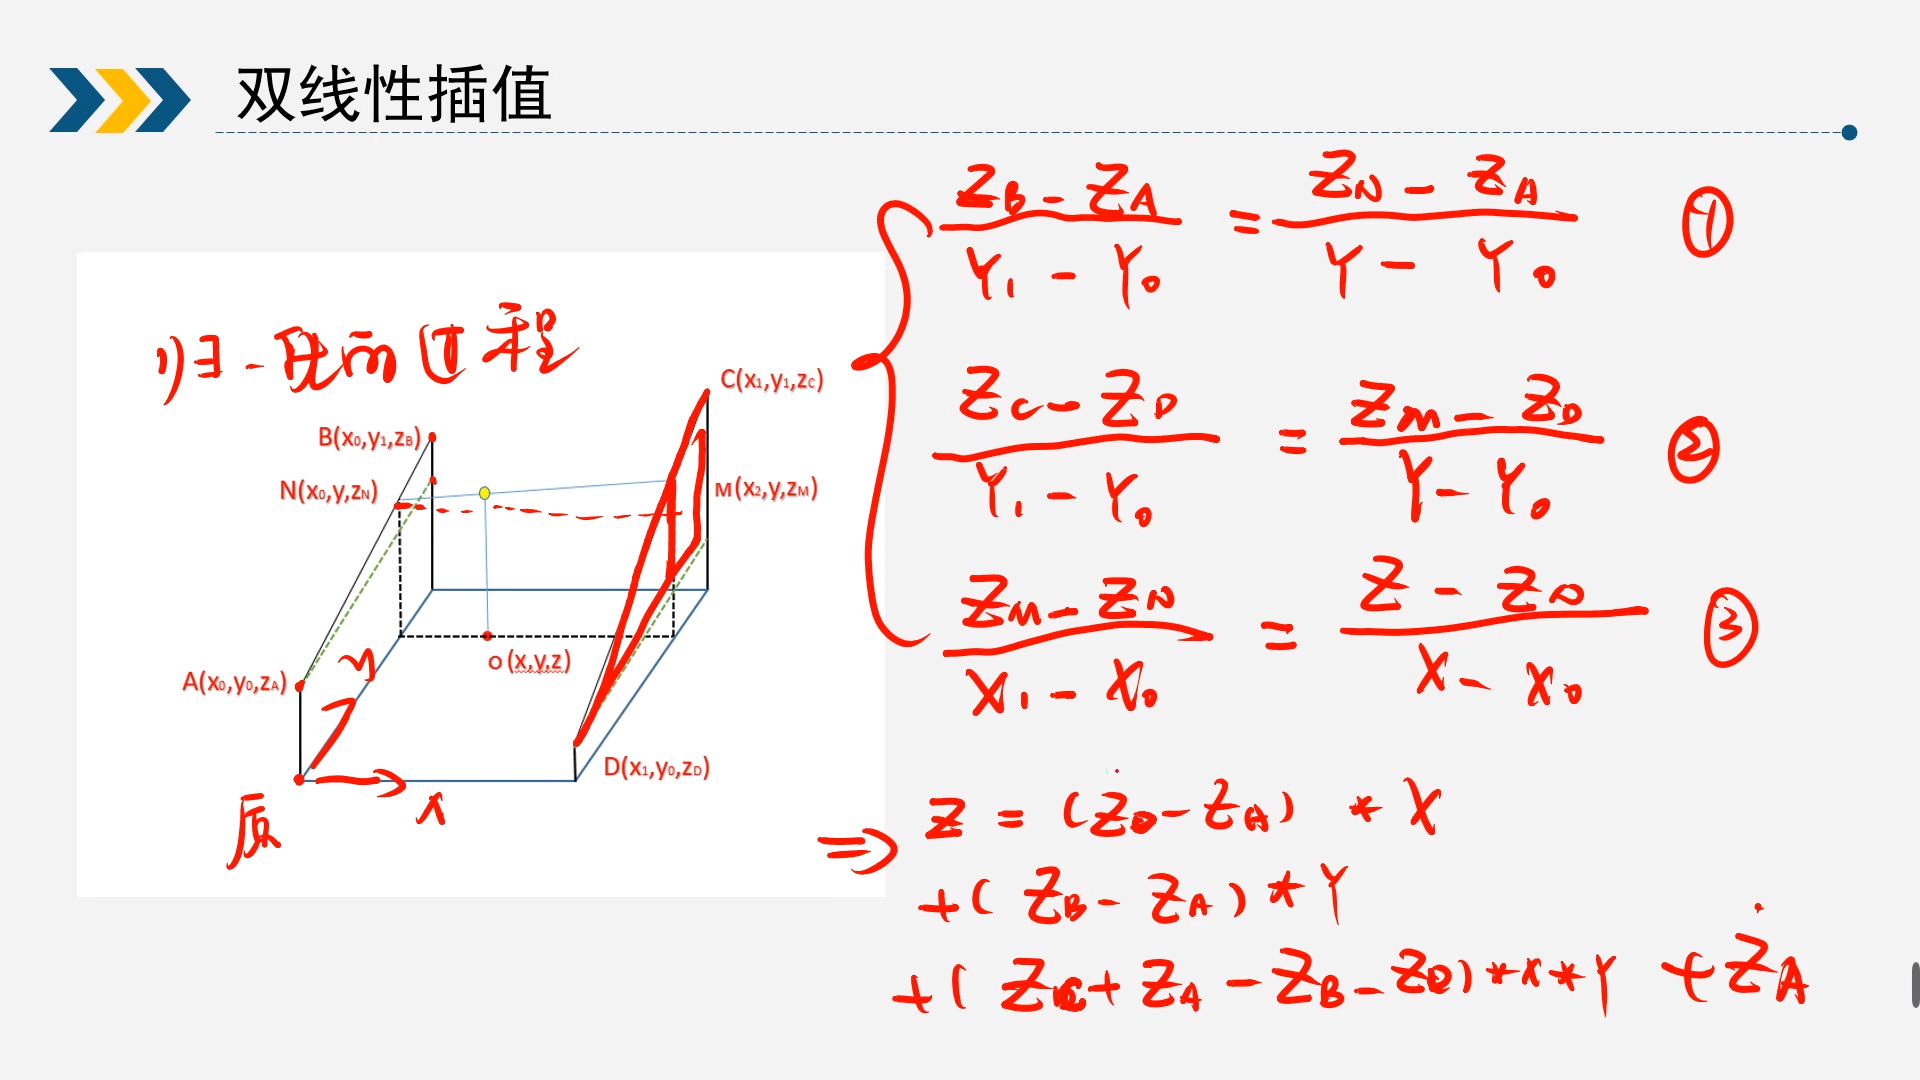 双线性插值
归一化的过程
C(x₁,y₁,z_C)
B(x₀,y₁,z_B)
N(x₀,y,z_N)
M(x₂,y,z_M)
O(x,y,z)
A(x₀,y₀,z_A)
D(x₁,y₀,z_D)
y
x
(Z_B - Z_A)/(Y₁ - Y₀) = (Z_N - Z_A)/(Y - Y₀) ①
(Z_C - Z_D)/(Y₁ - Y₀) = (Z_M - Z_D)/(Y - Y₀) ②
(Z_M - Z_N)/(X₁ - X₀) = (Z - Z_N)/(X - X₀) ③
⇒ Z = (Z_D - Z_A) * X
+ (Z_B - Z_A) * Y
+ (Z_C + Z_A - Z_B - Z_D) * X * Y + Z_A